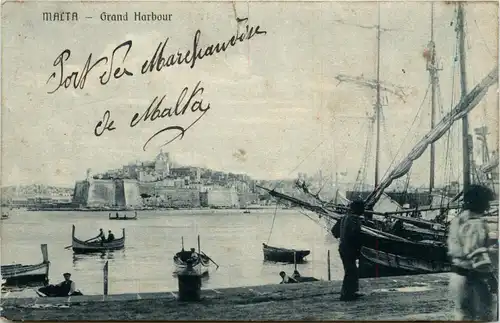 MALTA – Grand Harbour
Port des Marchandise
de Malta